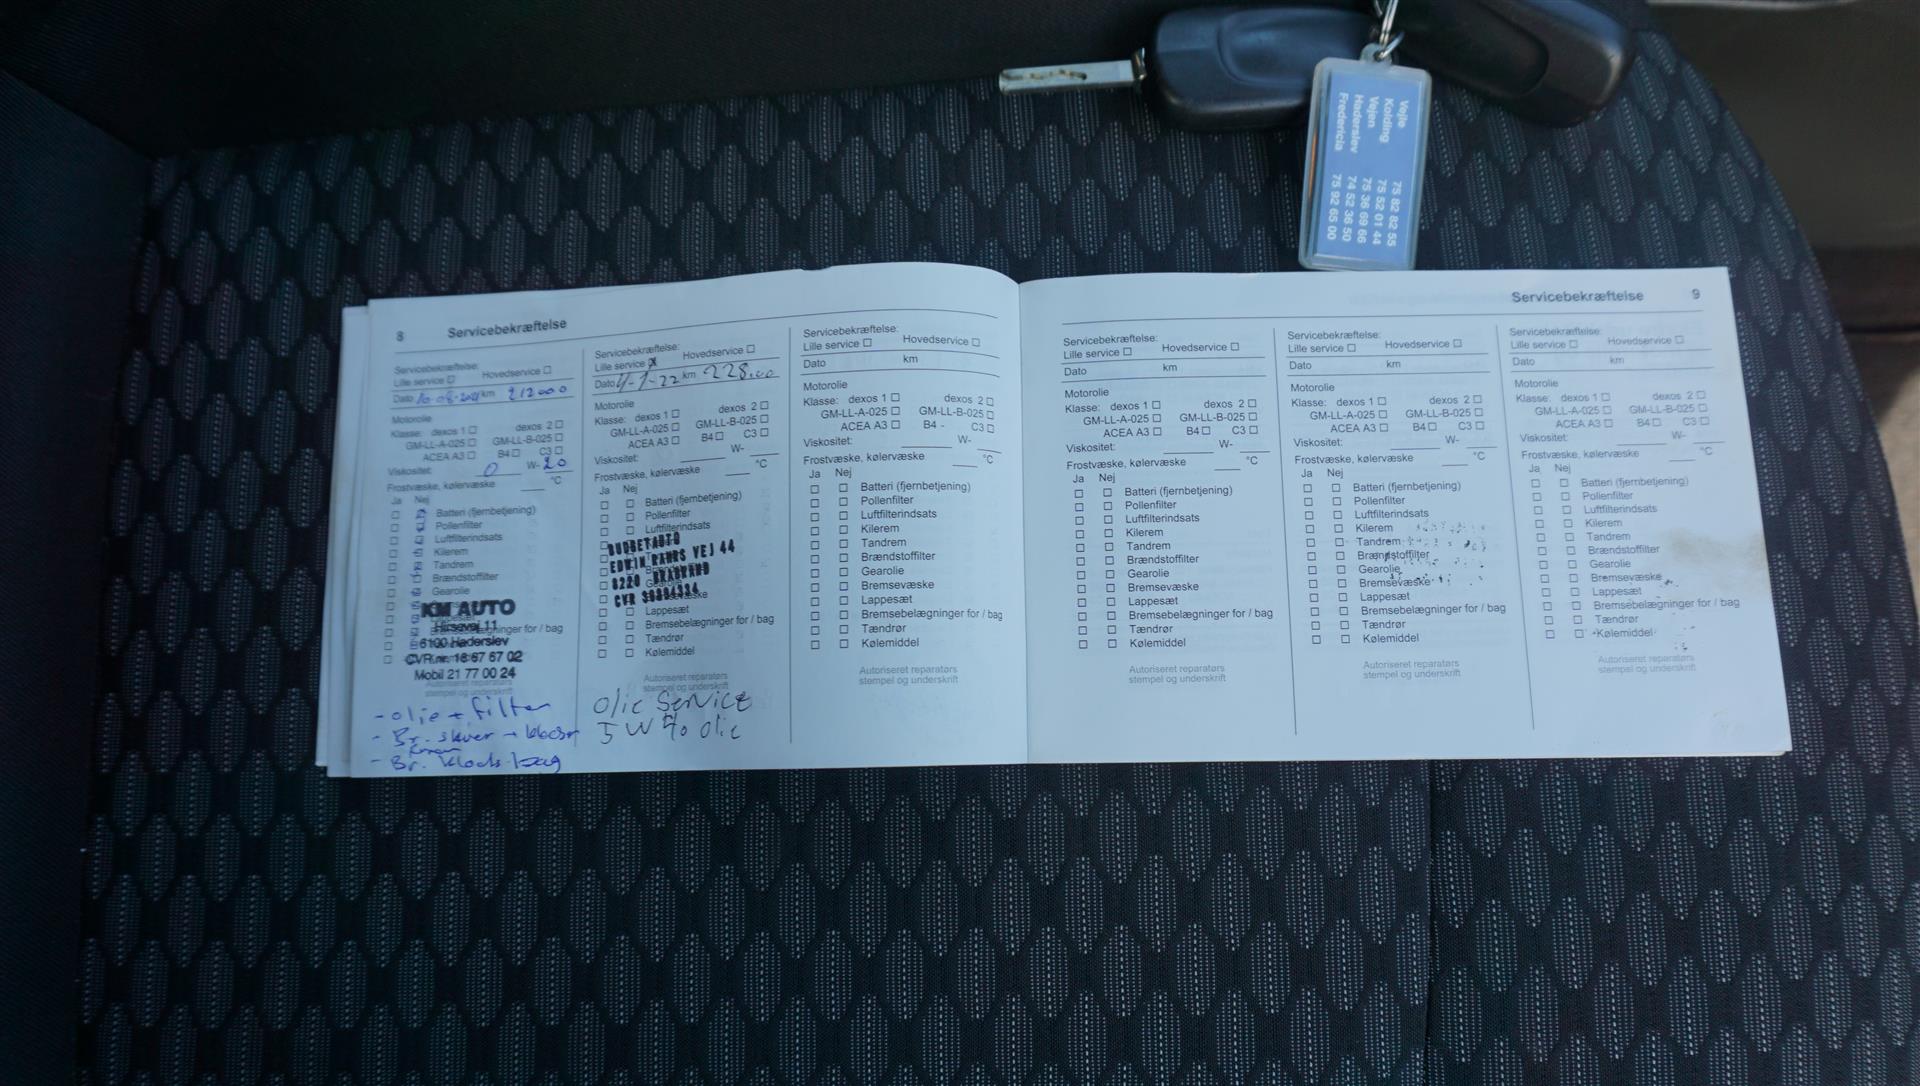 Vejle 75 82 82 55
Kolding 75 52 01 44
Vejen 75 36 69 66
Haderslev 74 52 36 50
Fredericia 75 92 65 00
8 Servicebekræftelse
Servicebekræftelse:
Lille service ☐ Hovedservice ☐
Dato 10-08-2021 km 212000
Motorolie
Klasse: dexos 1 ☐ dexos 2 ☐
GM-LL-A-025 ☐ GM-LL-B-025 ☐
ACEA A3 ☐ B4 ☐ C3 ☐
Viskositet: 0 W- 20
Frostvæske, kølervæske °C
Ja Nej
Batteri (fjernbetjening)
Pollenfilter
Luftfilterindsats
Kilerem
Tandrem
Brændstoffilter
Gearolie
KM AUTO
Hirsevej 11
6100 Haderslev
CVR.nr. 18 67 67 02
Mobil 21 77 00 24
Autoriseret reparatørs
stempel og underskrift
- olie + filter
- Br. skiver + klodser
- Br. klods bag
Servicebekræftelse:
Lille service ☒ Hovedservice ☐
Dato km 228.00
Motorolie
Klasse: dexos 1 ☐ dexos 2 ☐
GM-LL-A-025 ☐ GM-LL-B-025 ☐
ACEA A3 ☐ B4 ☐ C3 ☐
Viskositet: W-
Frostvæske, kølervæske °C
Ja Nej
☐ ☐ Batteri (fjernbetjening)
☐ ☐ Pollenfilter
☐ ☐ Luftfilterindsats
BUDGETAUTO
EDWIN RAHRS VEJ 44
8220 BRABRAND
CVR
☐ ☐ Lappesæt
☐ ☐ Bremsebelægninger for / bag
☐ ☐ Tændrør
☐ ☐ Kølemiddel
Autoriseret reparatørs
stempel og underskrift
Olie Service
5W40 olie
Servicebekræftelse:
Lille service ☐ Hovedservice ☐
Dato km
Motorolie
Klasse: dexos 1 ☐ dexos 2 ☐
GM-LL-A-025 ☐ GM-LL-B-025 ☐
ACEA A3 ☐ B4 - C3 ☐
Viskositet: W-
Frostvæske, kølervæske °C
Ja Nej
☐ ☐ Batteri (fjernbetjening)
☐ ☐ Pollenfilter
☐ ☐ Luftfilterindsats
☐ ☐ Kilerem
☐ ☐ Tandrem
☐ ☐ Brændstoffilter
☐ ☐ Gearolie
☐ ☐ Bremsevæske
☐ ☐ Lappesæt
☐ ☐ Bremsebelægninger for / bag
☐ ☐ Tændrør
☐ ☐ Kølemiddel
Autoriseret reparatørs
stempel og underskrift
Servicebekræftelse 9
Servicebekræftelse:
Lille service ☐ Hovedservice ☐
Dato km
Motorolie
Klasse: dexos 1 ☐ dexos 2 ☐
GM-LL-A-025 ☐ GM-LL-B-025 ☐
ACEA A3 ☐ B4 ☐ C3 ☐
Viskositet: W-
Frostvæske, kølervæske °C
Ja Nej
☐ ☐ Batteri (fjernbetjening)
☐ ☐ Pollenfilter
☐ ☐ Luftfilterindsats
☐ ☐ Kilerem
☐ ☐ Tandrem
☐ ☐ Brændstoffilter
☐ ☐ Gearolie
☐ ☐ Bremsevæske
☐ ☐ Lappesæt
☐ ☐ Bremsebelægninger for / bag
☐ ☐ Tændrør
☐ ☐ Kølemiddel
Autoriseret reparatørs
stempel og underskrift
Servicebekræftelse:
Lille service ☐ Hovedservice ☐
Dato km
Motorolie
Klasse: dexos 1 ☐ dexos 2 ☐
GM-LL-A-025 ☐ GM-LL-B-025 ☐
ACEA A3 ☐ B4 ☐ C3 ☐
Viskositet: W-
Frostvæske, kølervæske °C
Ja Nej
☐ ☐ Batteri (fjernbetjening)
☐ ☐ Pollenfilter
☐ ☐ Luftfilterindsats
☐ ☐ Kilerem
☐ ☐ Tandrem
☐ ☐ Brændstoffilter
☐ ☐ Gearolie
☐ ☐ Bremsevæske
☐ ☐ Lappesæt
☐ ☐ Bremsebelægninger for / bag
☐ ☐ Tændrør
☐ ☐ Kølemiddel
Autoriseret reparatørs
stempel og underskrift
Servicebekræftelse:
Lille service ☐ Hovedservice ☐
Dato km
Motorolie
Klasse: dexos 1 ☐ dexos 2 ☐
GM-LL-A-025 ☐ GM-LL-B-025 ☐
ACEA A3 ☐ B4 ☐ C3 ☐
Viskositet: W-
Frostvæske, kølervæske °C
Ja Nej
☐ ☐ Batteri (fjernbetjening)
☐ ☐ Pollenfilter
☐ ☐ Luftfilterindsats
☐ ☐ Kilerem
☐ ☐ Tandrem
☐ ☐ Brændstoffilter
☐ ☐ Gearolie
☐ ☐ Bremsevæske
☐ ☐ Lappesæt
☐ ☐ Bremsebelægninger for / bag
☐ ☐ Tændrør
☐ ☐ Kølemiddel
Autoriseret reparatørs
stempel og underskrift